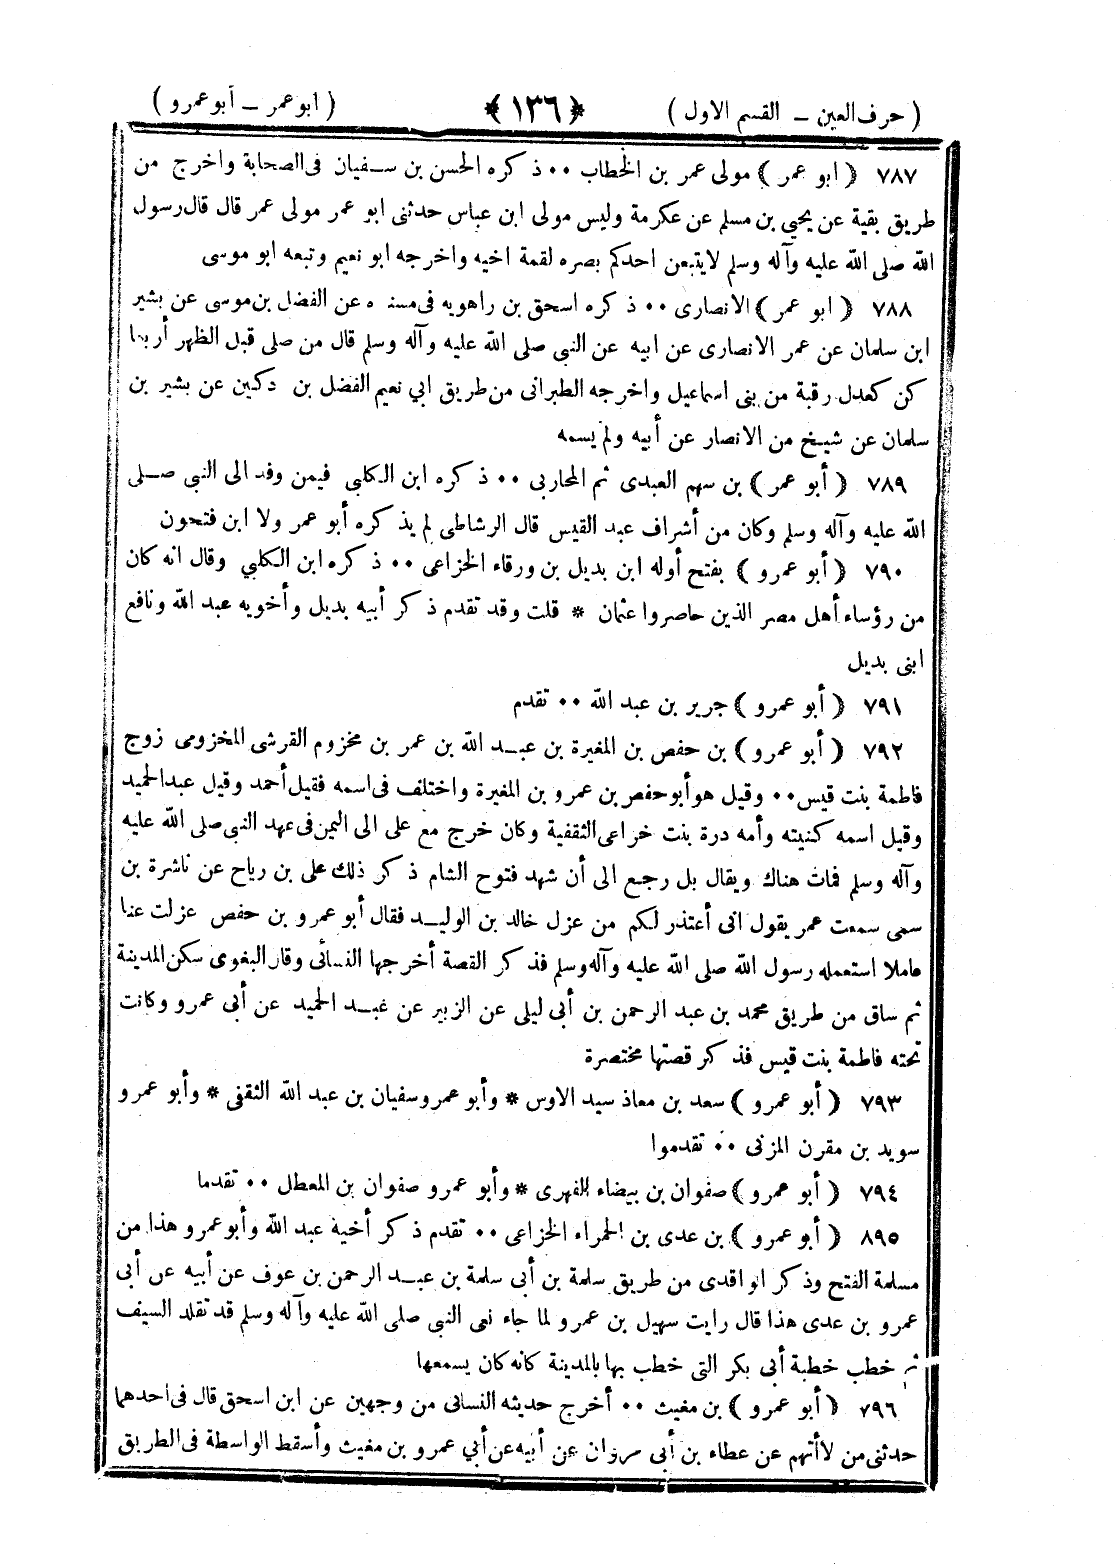 ( حرف العين – القسم الاول ) ﴿ ١٣٦ ﴾ ( ابوعمر – أبوعمرو )
٧٨٧ ( ابو عمر ) مولى عمر بن الخطاب ٠٠ ذكره الحسن بن سفيان فى الصحابة واخرج من
طريق بقية عن يحيى بن مسلم عن عكرمة وليس مولى ابن عباس حدثنى ابو عمر مولى عمر قال قال رسول
الله صلى الله عليه وآله وسلم لايتبعن احدكم بصره لقمة اخيه واخرجه ابو نعيم وتبعه ابو موسى
٧٨٨ ( ابو عمر ) الانصارى ٠٠ ذكره اسحق بن راهويه فى مسنده عن الفضل بن موسى عن بشير
ابن سلمان عن عمر الانصارى عن ابيه عن النبى صلى الله عليه وآله وسلم قال من صلى قبل الظهر أربعا
كن كعدل رقبة من بنى اسماعيل واخرجه الطبرانى من طريق ابي نعيم الفضل بن دكين عن بشير بن
سلمان عن شيخ من الانصار عن أبيه ولم يسمه
٧٨٩ ( أبو عمر ) بن سهم العبدى ثم المحاربى ٠٠ ذكره ابن الكلبى فيمن وفد الى النبى صلى
الله عليه وآله وسلم وكان من أشراف عبد القيس قال الرشاطى لم يذكره أبو عمر ولا ابن فتحون
٧٩٠ ( أبو عمرو ) بفتح أوله ابن بديل بن ورقاء الخزاعى ٠٠ ذكره ابن الكلبي وقال انه كان
من رؤساء أهل مصر الذين حاصروا عثمان * قلت وقد تقدم ذكر أبيه بديل وأخويه عبد الله ونافع
ابنى بديل
٧٩١ ( أبو عمرو ) جرير بن عبد الله ٠٠ تقدم
٧٩٢ ( أبو عمرو ) بن حفص بن المغيرة بن عبد الله بن عمر بن مخزوم القرشى المخزومى زوج
فاطمة بنت قيس ٠٠ وقيل هو أبو حفص بن عمرو بن المغيرة واختلف فى اسمه فقيل أحمد وقيل عبد الحميد
وقيل اسمه كنيته وأمه درة بنت خراعى الثقفية وكان خرج مع على الى اليمن فى عهد النبى صلى الله عليه
وآله وسلم فمات هناك ويقال بل رجع الى أن شهد فتوح الشام ذكر ذلك على بن رياح عن ناشرة بن
سمى سمعت عمر يقول انى أعتذر لكم من عزل خالد بن الوليد فقال أبو عمرو بن حفص عزلت عنا
عاملا استعمله رسول الله صلى الله عليه وآله وسلم فذكر القصة أخرجها النسائى وقال البغوى سكن المدينة
ثم ساق من طريق محمد بن عبد الرحمن بن أبى ليلى عن الزبير عن غبد الحميد عن أبى عمرو وكانت
تحته فاطمة بنت قيس فذكر قصتها مختصرة
٧٩٣ ( أبو عمرو ) سعد بن معاذ سيد الاوس * وأبو عمرو سفيان بن عبد الله الثقفى * وأبو عمرو
سويد بن مقرن المزنى ٠٠ تقدموا
٧٩٤ ( أبو عمرو ) صفوان بن بيضاء الفهرى * وأبو عمرو صفوان بن المعطل ٠٠ تقدما
٨٩٥ ( أبو عمرو ) بن عدى بن الحمراء الخزاعى ٠٠ تقدم ذكر أخيه عبد الله وأبو عمرو هذا من
مسلمة الفتح وذكر الواقدى من طريق سلمة بن أبى سلمة بن عبد الرحمن بن عوف عن أبيه عن أبى
عمرو بن عدى هذا قال رايت سهيل بن عمرو لما جاء نعى النبى صلى الله عليه وآله وسلم قد تقلد السيف
ثم خطب خطبة أبى بكر التى خطب بها بالمدينة كانه كان يسمعها
٧٩٦ ( أبو عمرو ) بن مغيث ٠٠ أخرج حديثه النسائى من وجهين عن ابن اسحق قال فى احدهما
حدثنى من لاأتهم عن عطاء بن أبى مروان عن أبيه عن أبي عمرو بن مغيث وأسقط الواسطة فى الطريق